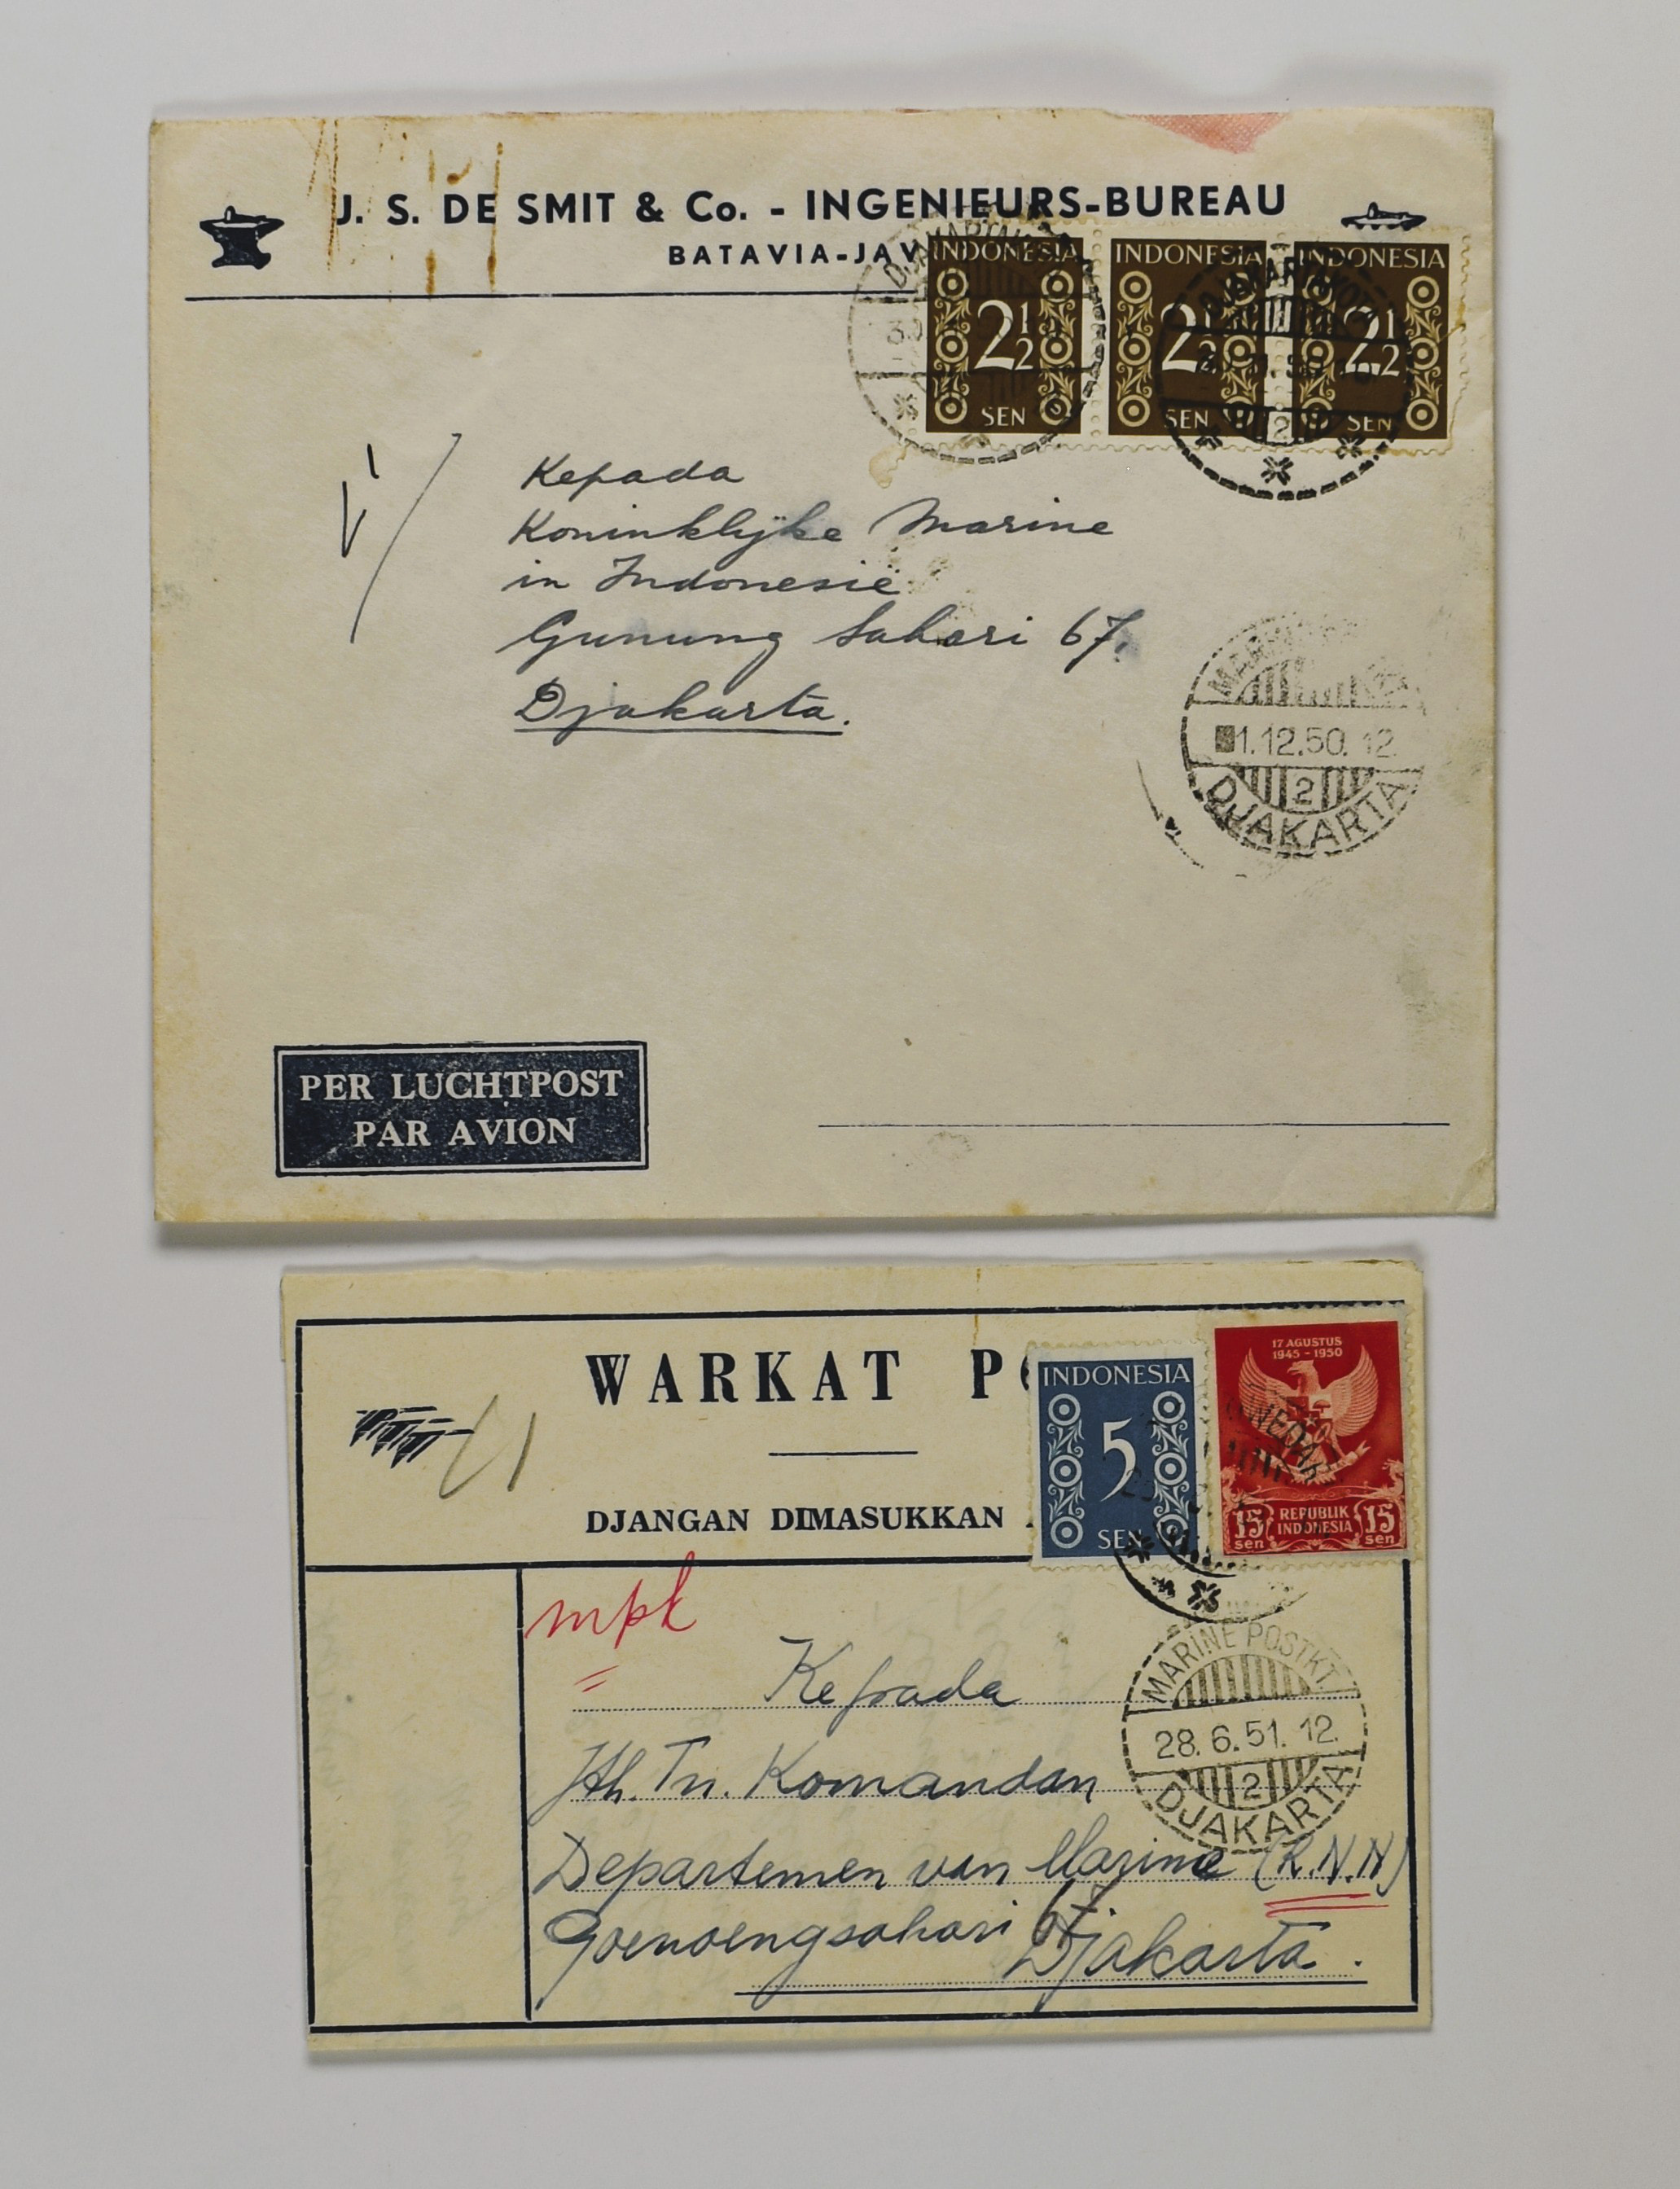 J. S. DE SMIT & Co. - INGENIEURS-BUREAU
BATAVIA-JAV
INDONESIA INDONESIA INDONESIA
2½ 2½ 2½
SEN SEN SEN
2
Kepada
Koninklijke Marine
in Indonesië
Gunung Sahari 67.
Djakarta.
1.12.50. 12
2
DJAKARTA
PER LUCHTPOST
PAR AVION
WARKAT PO
DJANGAN DIMASUKKAN
INDONESIA
5
SEN
17 AGUSTUS
1945 - 1950
15 sen REPUBLIK INDONESIA 15 sen
mpk
Kepada
Jth. Tn. Komandan
Departemen van Marine (K.N.N)
Goenoengsahari 67
Djakarta.
MARINE POSTKT
28. 6. 51. 12
2
DJAKARTA